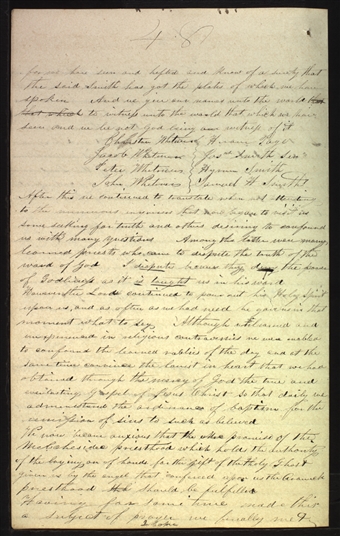 48
for we have seen and hefted and know of a surity that
the said Smith has got the plates of which we have
spoken And we give our names unto the world
to witness unto the world that which we have
seen and we lie not God bearing witness of it
Christian Whitmer Hiram Page
Jacob Whitmer Joseph Smith Sen
Peter Whitmer Hyrum Smith
John Whitmer Samuel H Smith
After this we continued to translate when not attending
to the numerous enquirers that now began to visit us
some seeking for truth and others desiring to confound
us with many questions Among the latter were many
learned priests who came to dispute the truth of the
word of God I dispute because they deny the power
of Godliness as it is taught us in his word
However the Lord continued to pour out his Holy Spirit
upon us, and as often as we had need he gave us in that
moment what to say. Although unlearned and
inexperienced in religious controversies we were enabled
to confound the learned rabbies of the day and at the
same time convince the honest in heart that we had
obtained through the mercy of God the true and
everlasting Gospel of Jesus Christ So that daily we
administered the ordinance of baptism for the
remission of sins to such as believed
We now became anxious that the promise of the
Melchesidec priesthood which holds the authority
of the laying on of hands for the gift of the Holy Ghost
given us by the angel that confirmed upon us the Aaronic
priesthood should be fulfilled
Having for some time made this
a subject of prayer we finally met